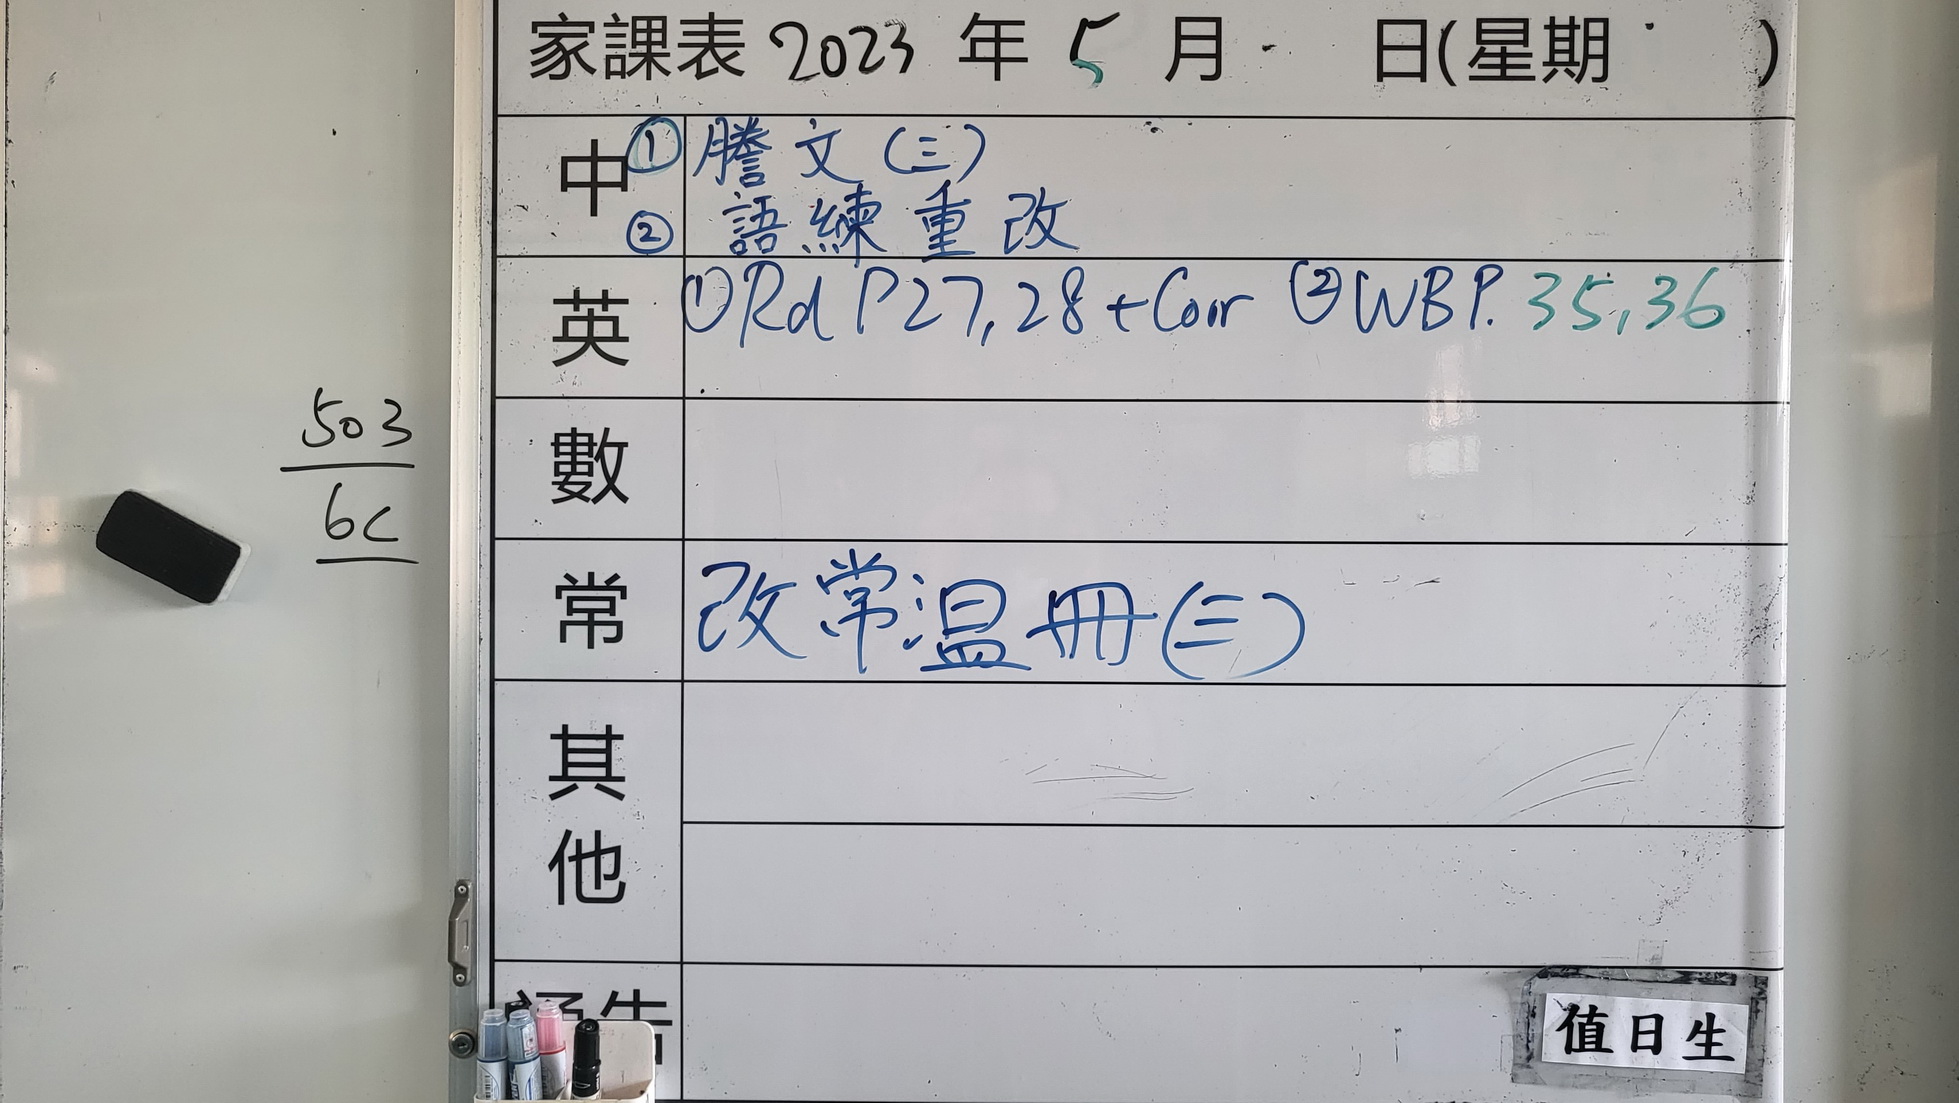 家課表 2023 年 5 月 日(星期 )
中 ① 謄文(三)
② 語練重改
英 ①Rd P27,28+Corr ②WBP.35,36
數
常 改常温冊(三)
其他
通告
值日生
503
6C